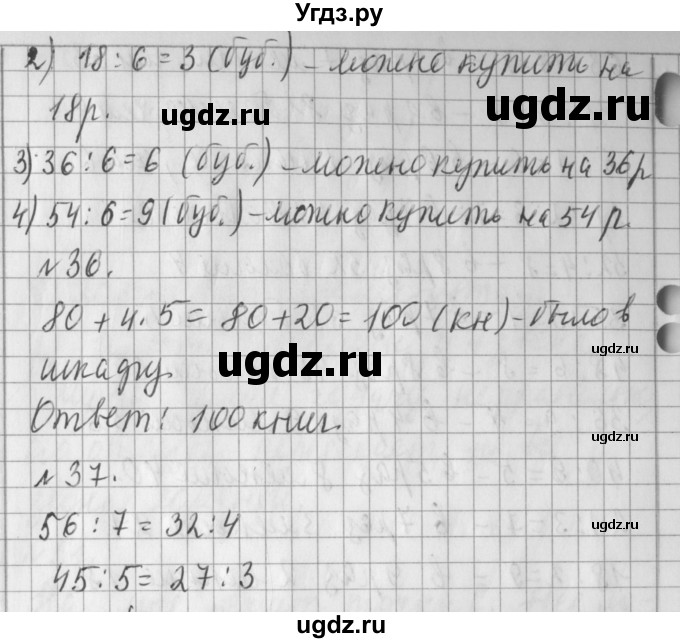 Угдз.ру
2) 18 : 6 = 3 (буб.) – можно купить на
18р.
ugdz.ru
ugdz.ru
3) 36 : 6 = 6 (буб.) – можно купить на 36р
4) 54 : 6 = 9 (буб.) – можно купить на 54 р.
ugdz.ru
ugdz.ru
№ 36.
80 + 4 · 5 = 80 + 20 = 100 (кн) – было в
шкафу.
ugdz.ru
ugdz.ru
Ответ: 100 книг.
ugdz.ru
№ 37.
56 : 7 = 32 : 4
ugdz.ru
ugdz.ru
45 : 5 = 27 : 3
ugdz.ru
Угдз.ру